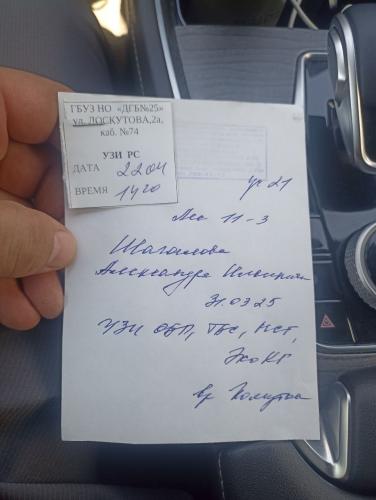 ГБУЗ НО «ДГБ№25»
ул. ЛОСКУТОВА,2а,
каб. №74
УЗИ РС
ДАТА 22 04
ВРЕМЯ 14 20
уч 21
11-3
Александра
31.03.25
УЗИ ОБП, ТБС, НСГ,
ЭхоКГ
вр